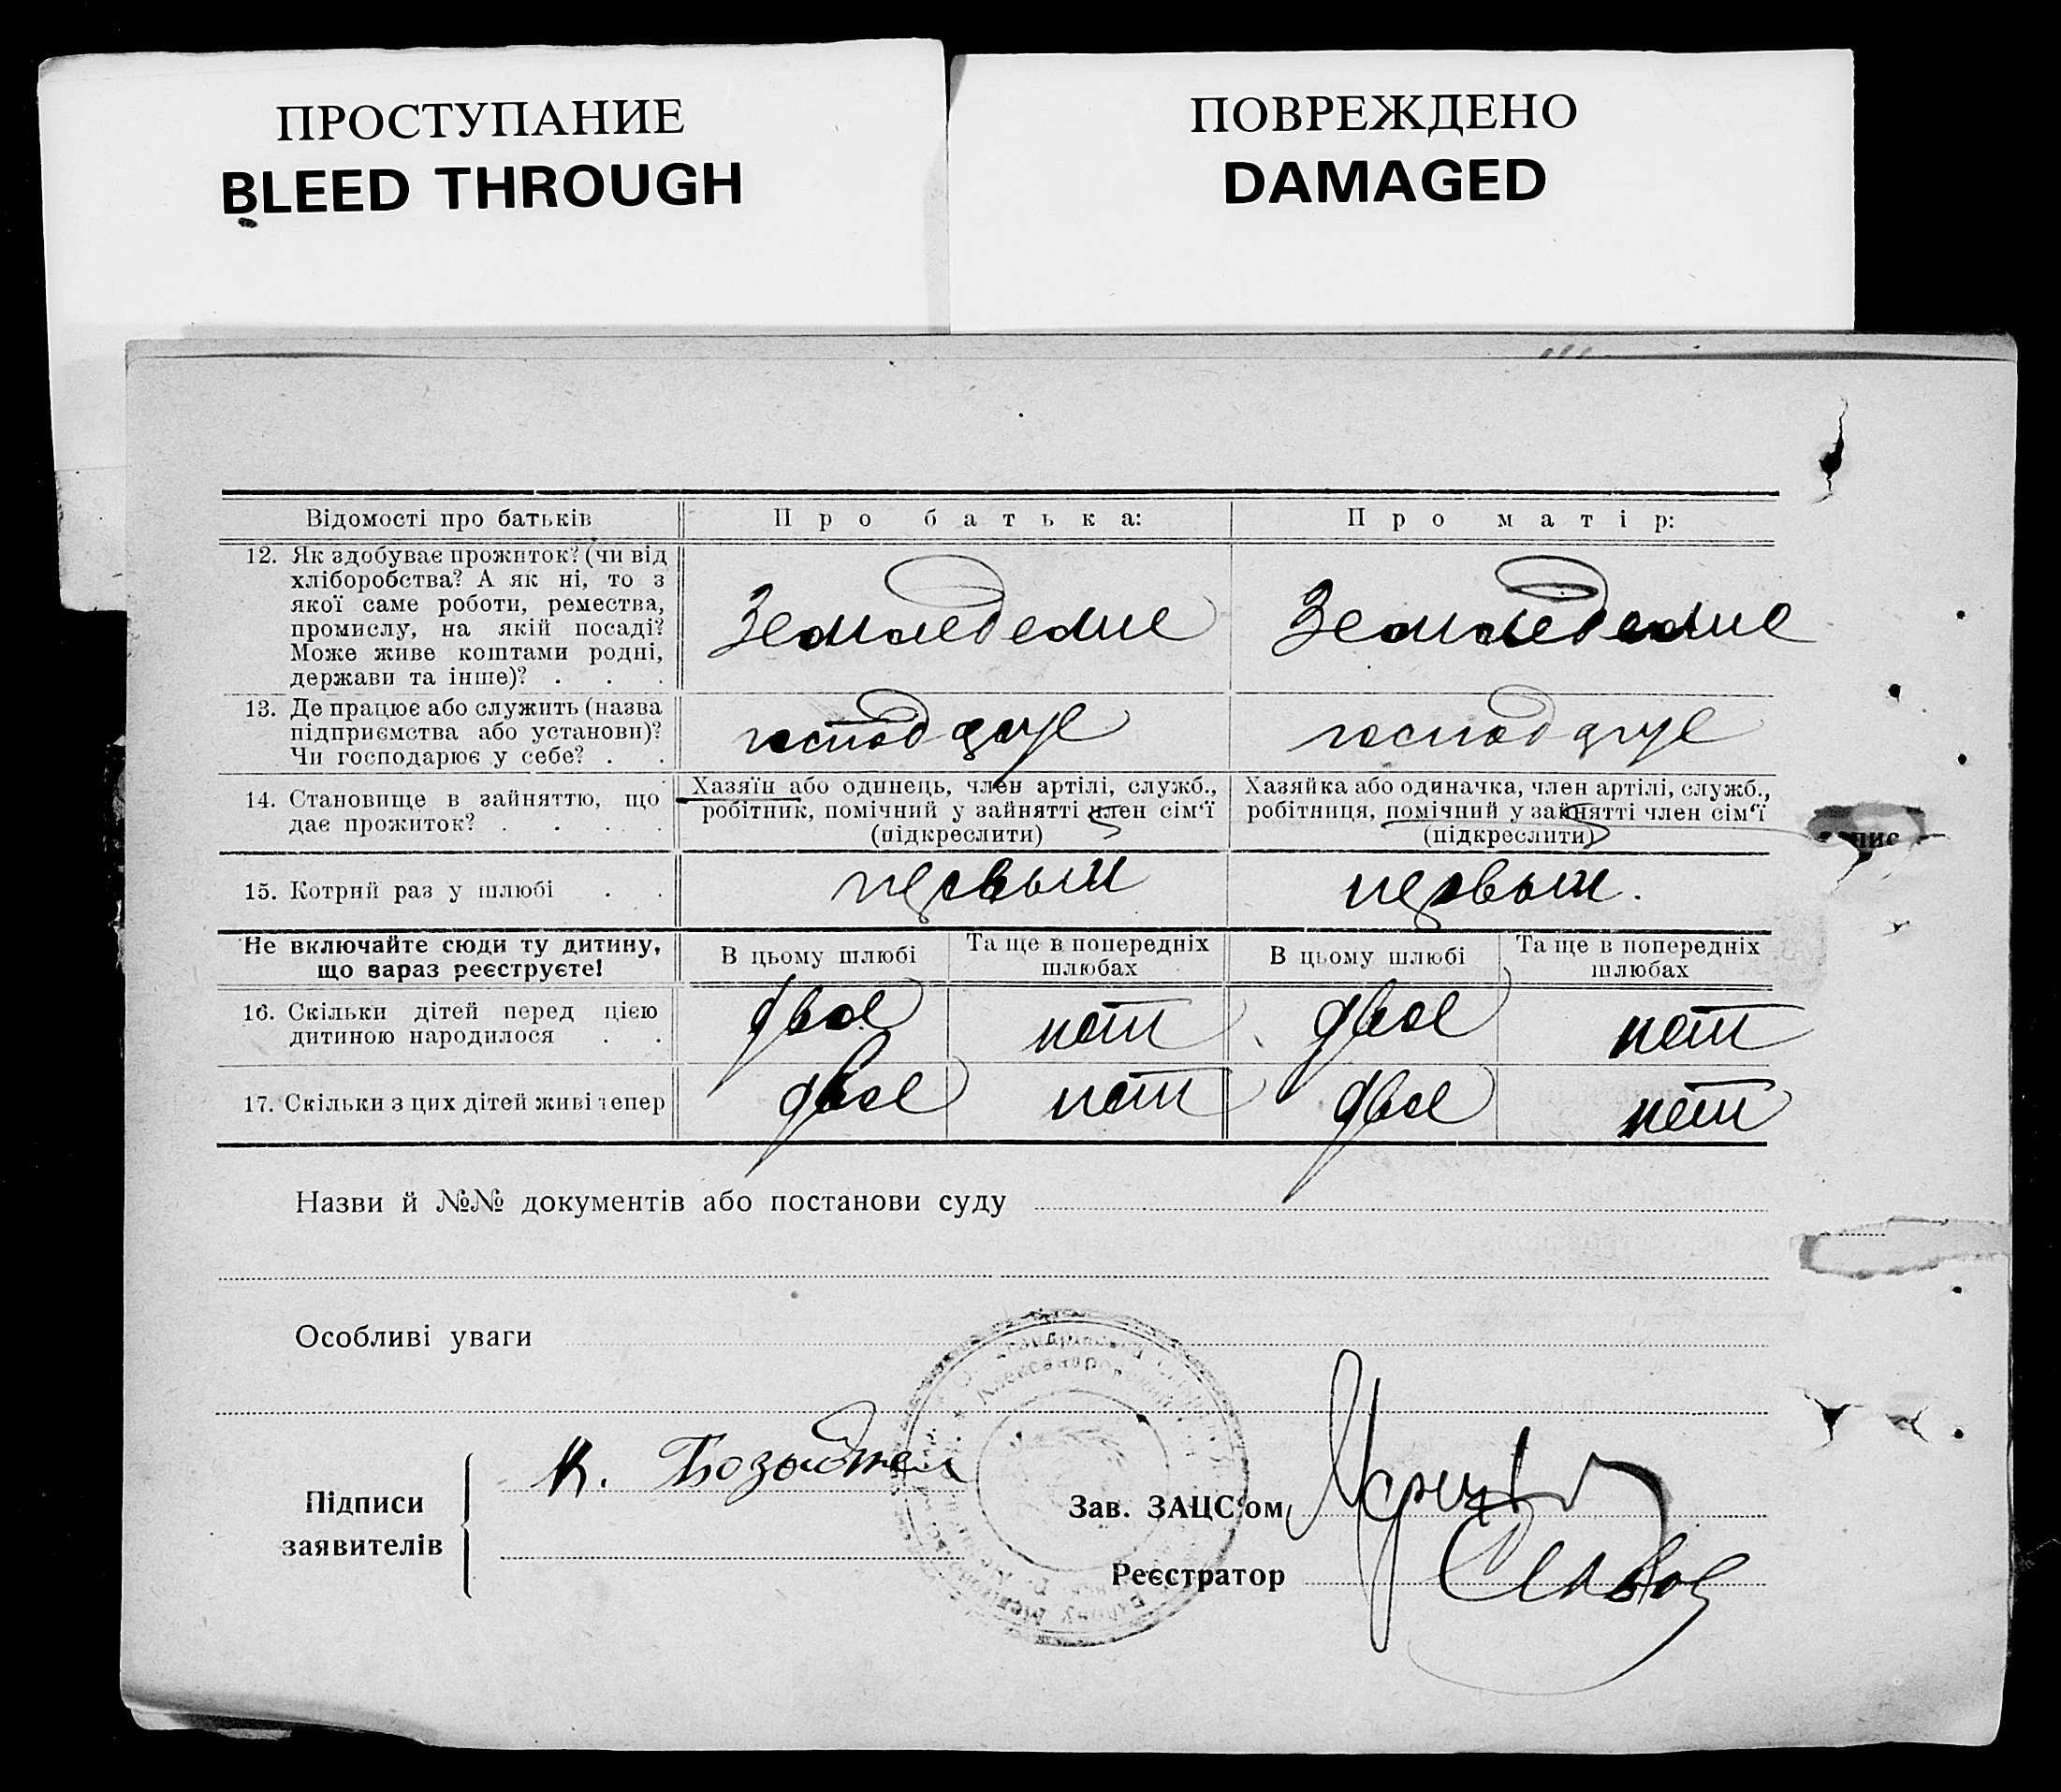 ПРОСТУПАНИЕ
BLEED THROUGH
ПОВРЕЖДЕНО
DAMAGED
Відомості про батьків
Про батька:
Про матір:
12. Як здобуває прожиток? (чи від
хліборобства? А як ні, то з
якої саме роботи, ремества,
промислу, на якій посаді?
Може живе коштами родні,
держави та інше)? . . .
Земледелие
Земледелие
13. Де працює або служить (назва
підприємства або установи)?
Чи господарює у себе? . .
14. Становище в зайняттю, що
дає прожиток? . . . .
Хазяїн або одинець, член артілі, служб.,
робітник, помічний у зайнятті член сім'ї
(підкреслити)
Хазяйка або одиначка, член артілі, служб.,
робітниця, помічний у зайнятті член сім'ї
(підкреслити)
пис
15. Котрий раз у шлюбі . .
первый
первый.
Не включайте сюди ту дитину,
що зараз реєструєте!
В цьому шлюбі
Та ще в попередніх
шлюбах
В цьому шлюбі
Та ще в попередніх
шлюбах
16. Скільки дітей перед цією
дитиною народилося . .
двое
нет
двое
нет
17. Скільки з цих дітей живі тепер
двое
нет
двое
нет
Назви й №№ документів або постанови суду
Особливі уваги
Підписи
заявителів
К.
Зав. ЗАЦС'ом
Реєстратор